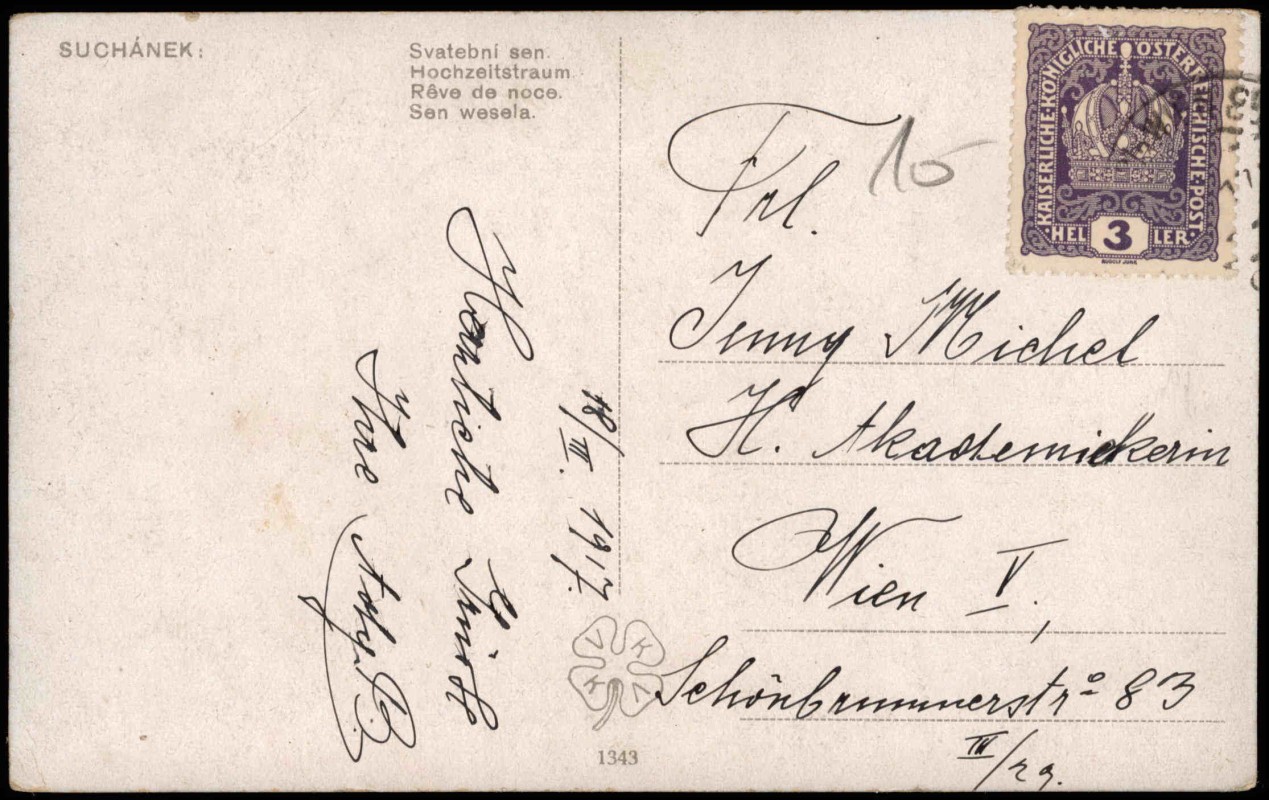 SUCHÁNEK:
Svatební sen.
Hochzeitstraum
Rêve de noce.
Sen wesela.
18/III. 1917.
Herzliche Grüße
Ihre
KAISERLICHE·KÖNIGLICHE ÖSTERREICHISCHE·POST·
HELLER
3
RUDOLF JUNK
10
Frl.
Jenny Michel
H. Akademickerin
Wien V,
Schönbrunnerstr 83
III/29.
V K K V
1343